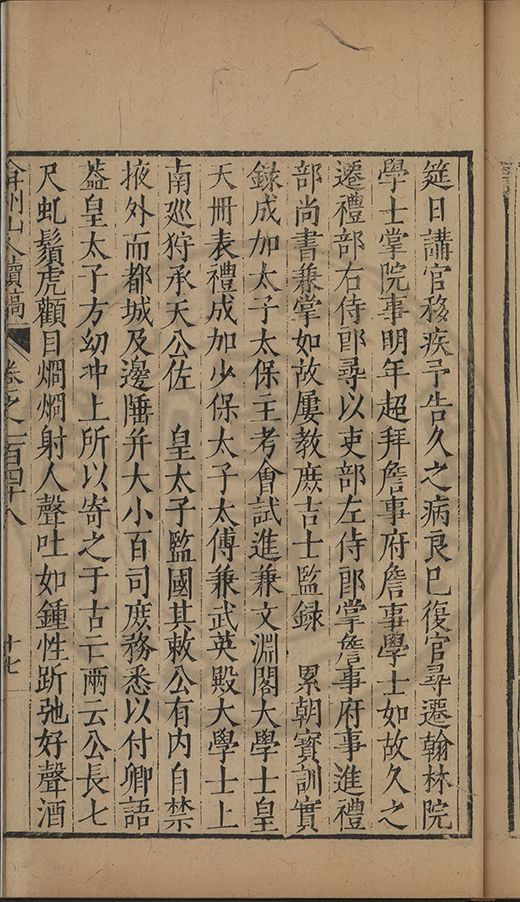 筵日講官移疾予告久之病良巳復官尋遷翰林院
學士掌院事明年超拜詹事府詹事學士如故久之
遷禮部右侍郎尋以吏部左侍郎掌詹事府事進禮
部尚書兼掌如故屢教庶吉士監録　累朝寶訓實
録成加太子太保主考會試進兼文淵閣大學士皇
天冊表禮成加少保太子太傅兼武英殿大學士上
南廵狩承天公佐　皇太子監國其敕公有内自禁
掖外而都城及邊陲并大小百司庶務悉以付卿語
葢皇太子方幼冲上所以寄之于古亡兩云公長七
尺虬鬚虎顴目烱烱射人聲吐如鍾性跅弛好聲酒
弇州山人續稿　卷之一百四十八　十七